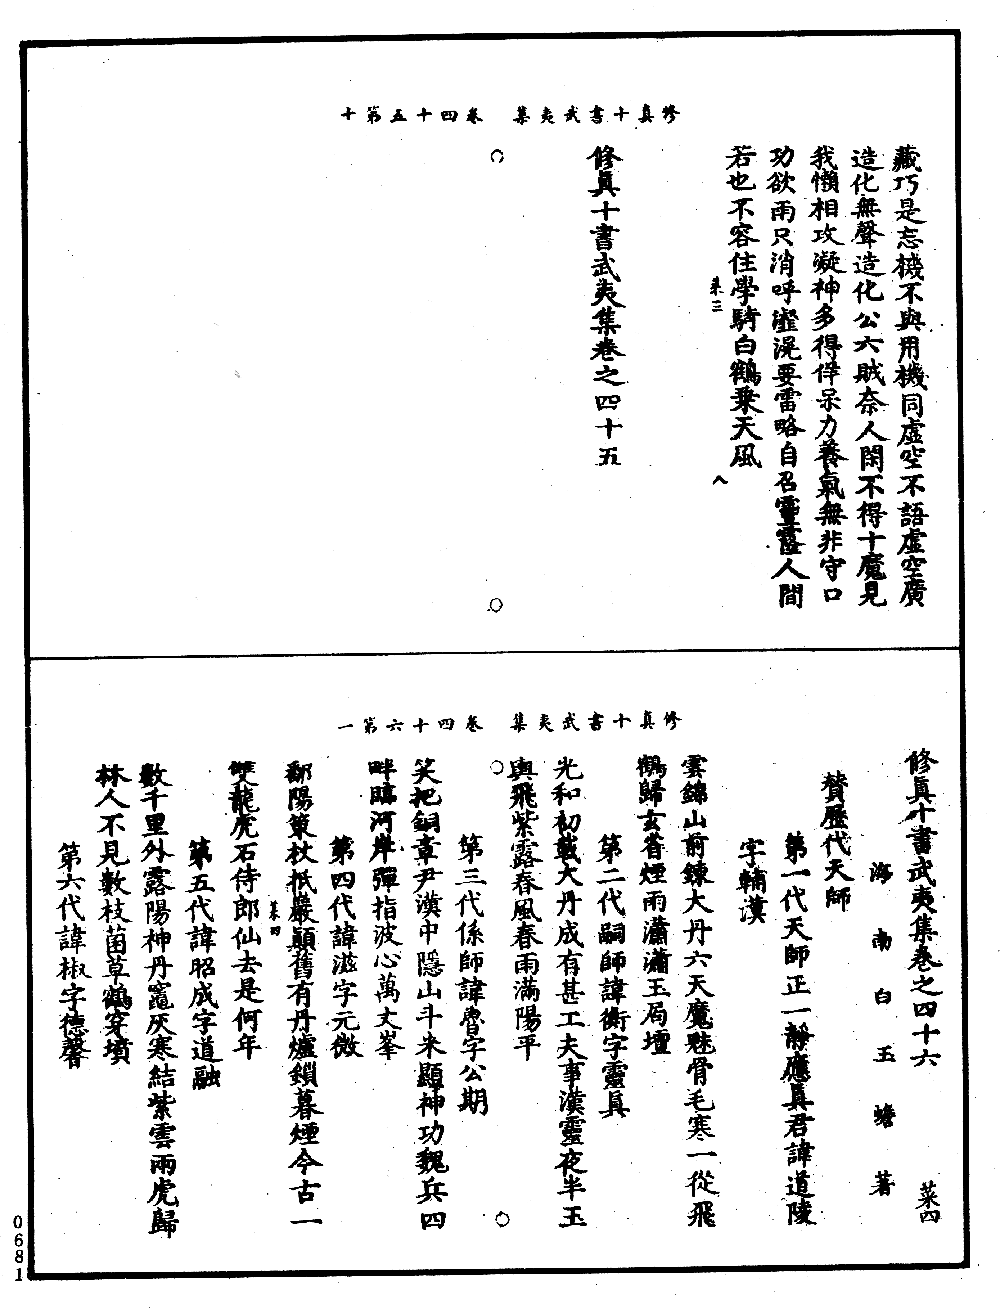 修真十書武夷集　卷四十五第十
藏巧是忘機不與用機同虛空不語虛空廣
造化無聲造化公六賊奈人閑不得十魔見
我懶相攻凝神多得伴呆力養氣無非守口
功欲雨只消呼澁滉要雷略自召靈䨴人間
若也不容住學騎白鶴乘天風
菜三
八
修真十書武夷集卷之四十五
修真十書武夷集　卷四十六第一
修真十書武夷集卷之四十六
菜四
海南白玉蟾著
贊歷代天師
第一代天師正一靜應真君諱道陵
字輔漢
雲錦山前鍊大丹六天魔魅骨毛寒一從飛
鶴歸玄省煙雨瀟瀟玉局壇
第二代嗣師諱衡字靈真
光和初載大丹成有甚工夫事漢靈夜半玉
輿飛紫露春風春雨滿陽平
第三代係師諱魯字公期
笑把銅章尹漢中隱山斗米顯神功魏兵四
畔臨河岸彈指波心萬丈峯
第四代諱滋字元微
鄱陽策杖抵巖顛舊有丹爐鎖暮煙今古一
菜四
雙龍虎石侍郎仙去是何年
第五代諱昭成字道融
數千里外露陽神丹竈灰寒結紫雲兩虎歸
林人不見數枝菌草鶴穿墳
第六代諱椒字德馨
0681